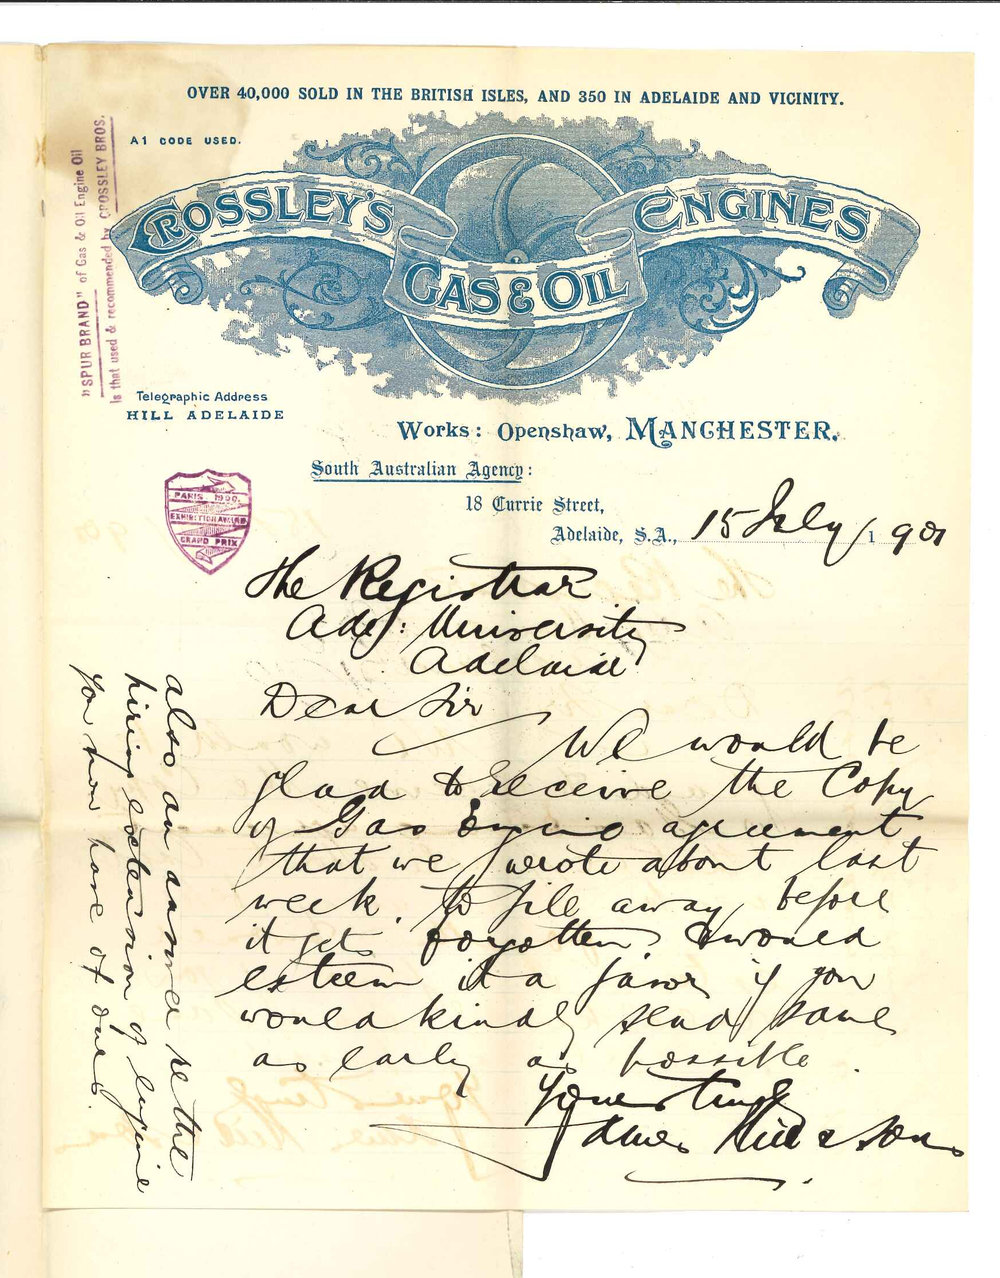 OVER 40,000 SOLD IN THE BRITISH ISLES, AND 350 IN ADELAIDE AND VICINITY.
A1 CODE USED.
"SPUR BRAND" of Gas & Oil Engine Oil
Is that used & recommended by CROSSLEY BROS.
CROSSLEY'S
GAS & OIL
ENGINES
Telegraphic Address
HILL ADELAIDE
Works: Openshaw, MANCHESTER.
South Australian Agency:
18 Currie Street,
Adelaide, S.A., 15 July 1901
PARIS 1900.
EXHIBITION AWARD
GRAND PRIX
The Registrar
Ade: University
Adelaide
Dear Sir
We would be
glad to receive the Copy
of Gas Engine agreement
that we wrote about last
week, to file away before
it gets forgotten, & would
esteem it a favor if you
would kindly send same
as early as possible
Yours truly
James Hill & Sons
also an answer re the
hiring extension of engine
you now have of ours.